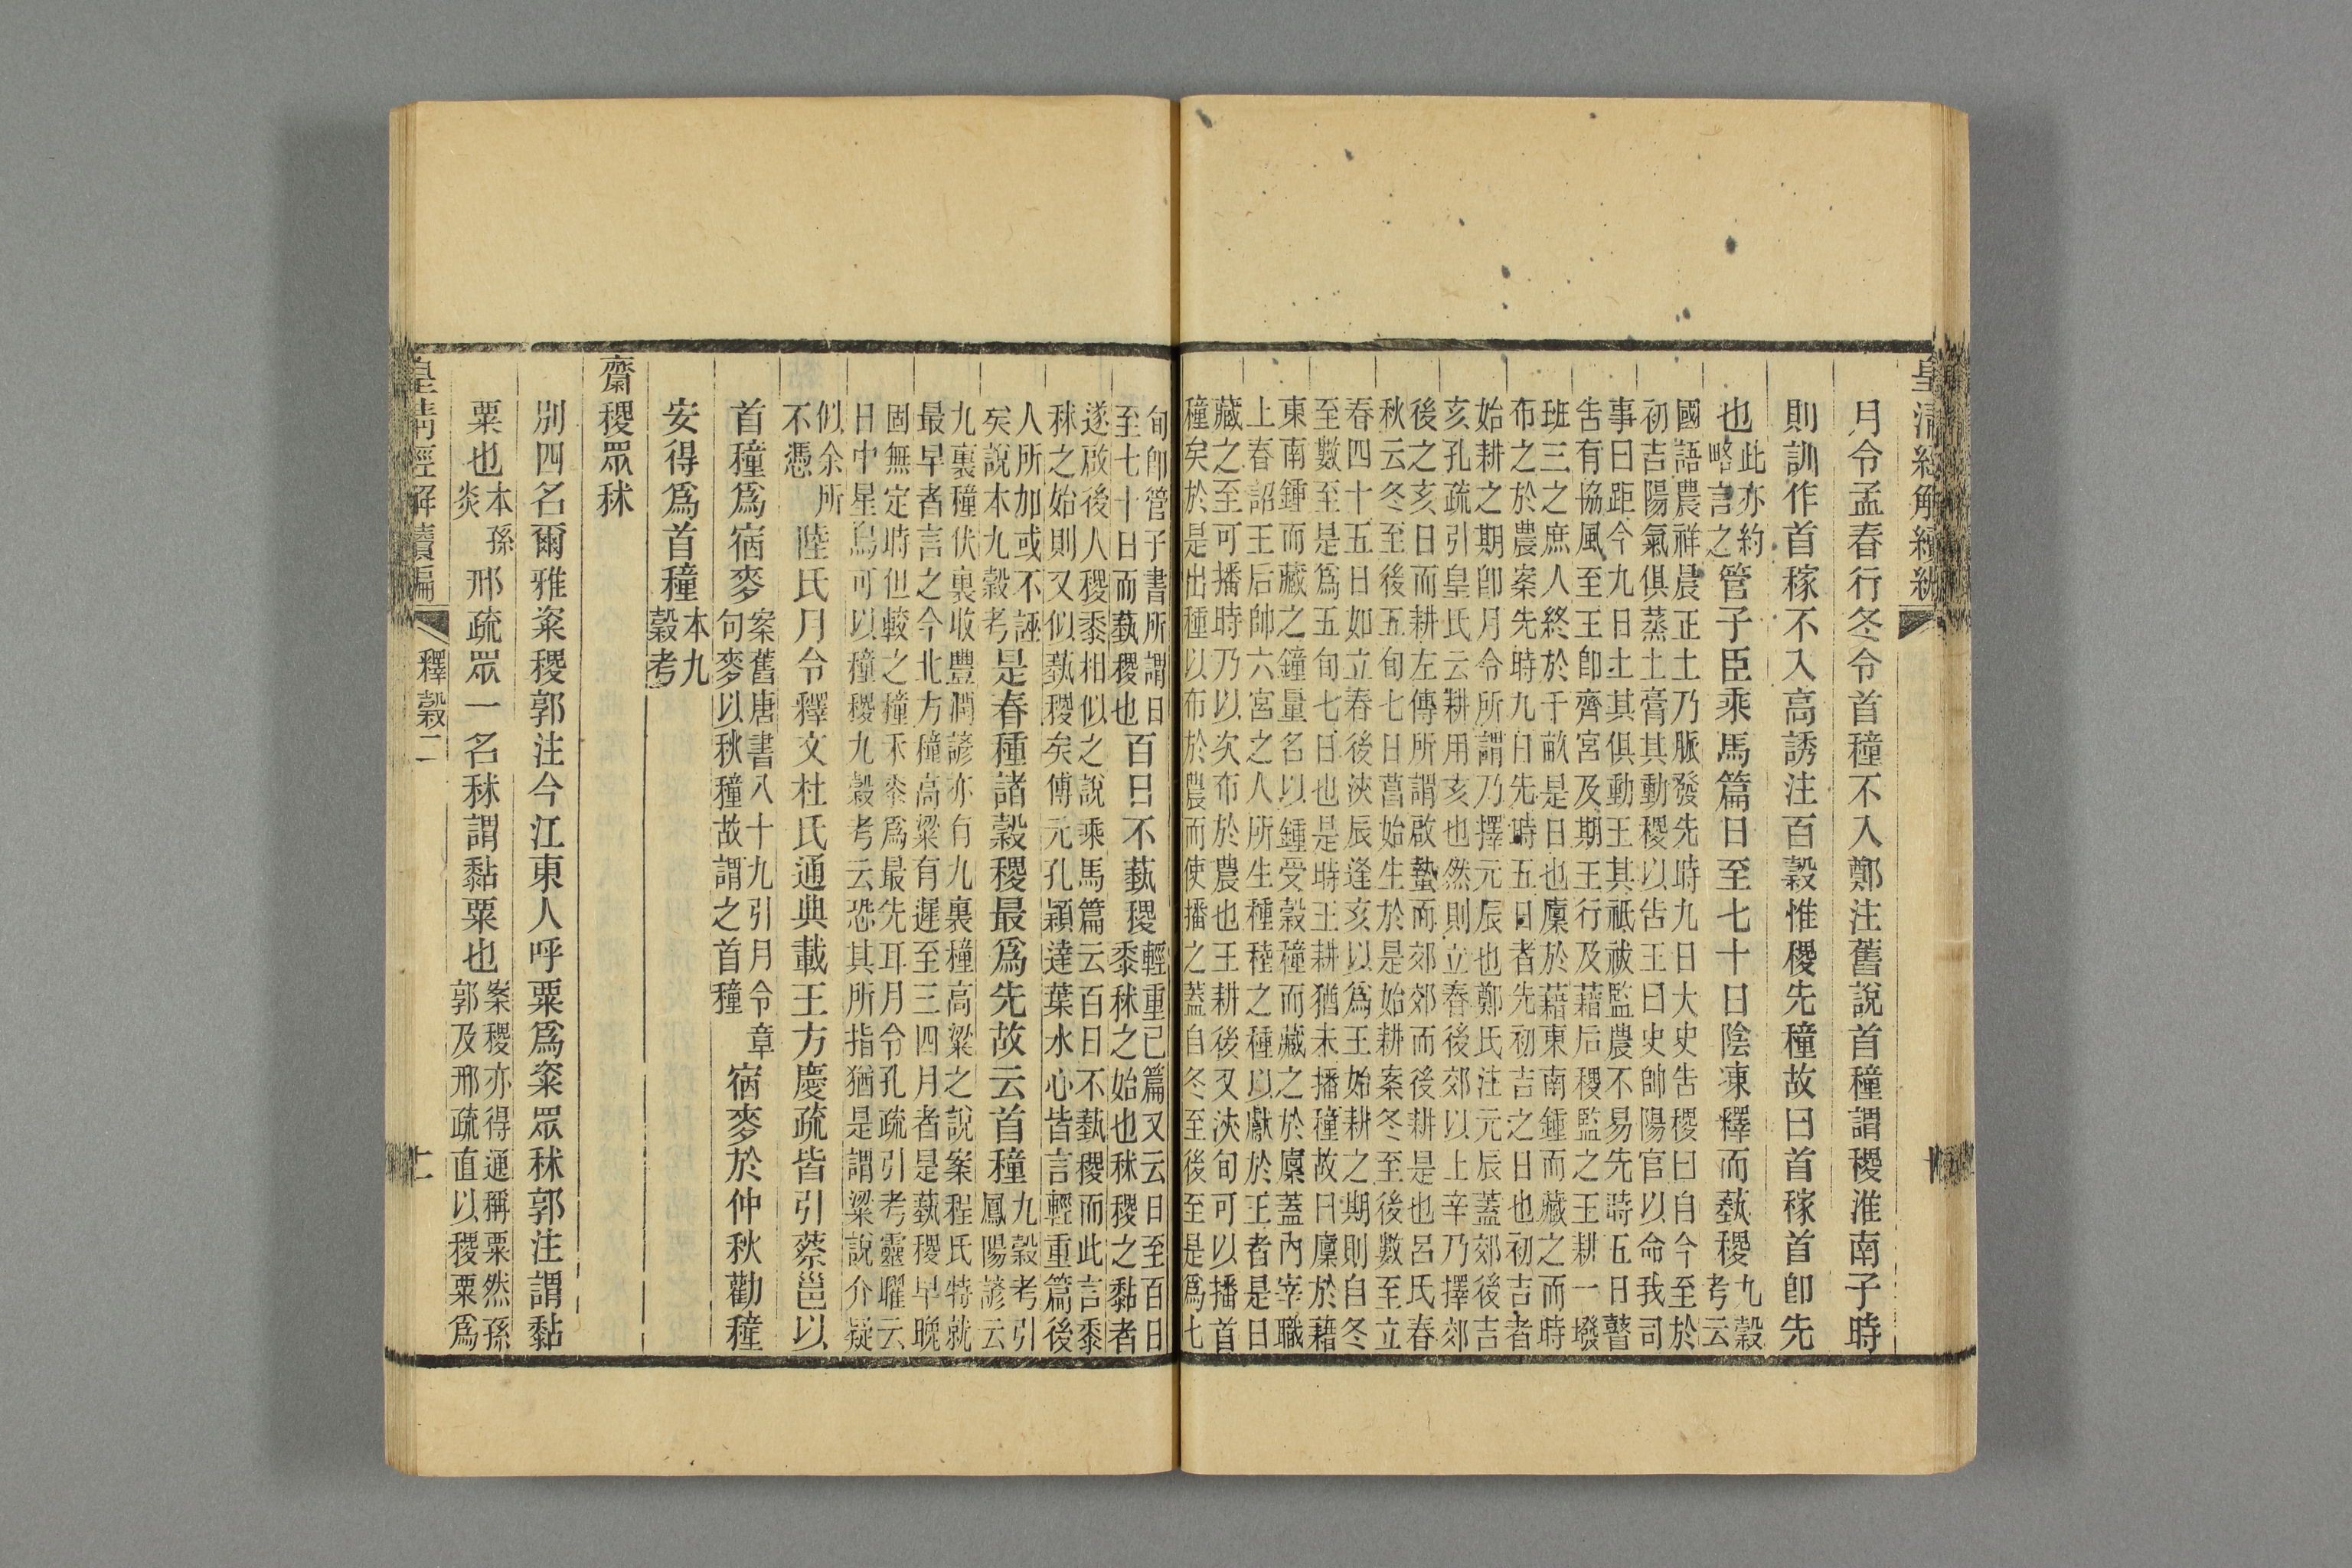 皇清經解續編
月令孟春行冬令首穜不入鄭注舊說首穜謂稷淮南子時
則訓作首稼不入高誘注百穀惟稷先穜故曰首稼首卽先
也此亦約略言之管子臣乘馬篇日至七十日陰凍釋而蓺稷九穀考云
國語農祥晨正土乃脈發先時九日大史告稷曰自今至於
初吉陽氣俱蒸土膏其動稷以告王曰史帥陽官以命我司
事曰距今九日土其俱動王其祗祓監農不易先時五日瞽
告有協風至王卽齊宮及期王行及藉后稷監之王耕一墢
班三之庶人終於千畝是日也廩於藉東南鍾而藏之而時
布之於農案先時九日先時五日者先初吉之日也初吉者
始耕之期卽月令所謂乃擇元辰也鄭氏注元辰蓋郊後吉
亥孔疏引皇氏云耕用亥也然則立春後郊以上辛乃擇郊
後之亥日而耕左傳所謂啟蟄而郊郊而後耕是也呂氏春
秋云冬至後五旬七日菖始生於是始耕案冬至後數至立
春四十五日如立春後浹辰逢亥以爲王始耕之期則自冬
至數至是爲五旬七日也是時王耕猶未播穜故曰廩於藉
東南鍾而藏之鐘量名以鍾受穀穜而藏之於廩蓋內宰職
上春詔王后帥六宮之人所生種稑之種以獻於王者是曰
藏之至可播時乃以次布於農也王耕後又浹旬可以播首
穜矣於是出種以布於農而使播之蓋自冬至後至是爲七
旬卽管子書所謂日至七十日而蓺稷也百日不蓺稷輕重已篇又云日至百日黍秫之始也秫稷之黏者
遂啟後人稷黍相似之說乘馬篇云百日不蓺稷而此言黍
秫之始則又似蓺稷矣傅元孔穎達葉水心皆言輕重篇後
人所加或不誣矣說本九穀考是春種諸穀稷最爲先故云首穜九穀考引鳳陽諺云
九裏穜伏裏收豐潤諺亦有九裏穜高粱之說案程氏特就
最早者言之今北方穜高粱有遲至三四月者是蓺稷早晚
固無定時但較之穜禾黍爲最先耳月令孔疏引考靈曜云
日中星鳥可以穜稷九穀考云恐其所指猶是謂粱說介疑
似余所不憑陸氏月令釋文杜氏通典載王方慶疏皆引蔡邕以
首穜爲宿麥案舊唐書八十九引月令章句麥以秋穜故謂之首穜宿麥於仲秋勸穜
安得爲首穜本九穀考
齋稷眾秫
別四名爾雅粢稷郭注今江東人呼粟爲粢眾秫郭注謂黏
粟也本孫炎邢疏眾一名秫謂黏粟也案稷亦得通稱粟然孫郭及邢疏直以稷粟爲
皇清經解續編 釋穀二